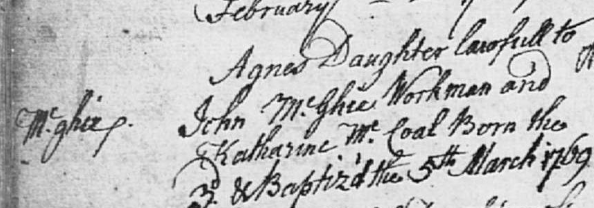 February
Agnes Daughter lawfull to
John McGhee Workman and
McGhee.
Katharine Mc Coal Born the
3d & Baptiz'd the 5th March 1769